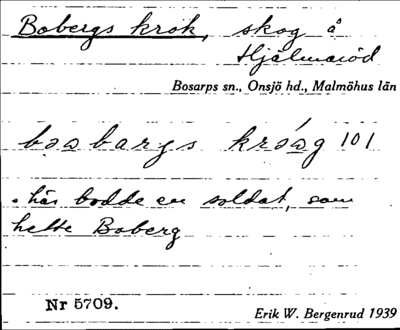 Bobergs krok, skog å
Hjälmaröd
Bosarps sn., Onsjö hd., Malmöhus län
kråɷg 101
här bodde en soldat, som
hette Boberg
Nr 5709.
Erik W. Bergenrud 1939